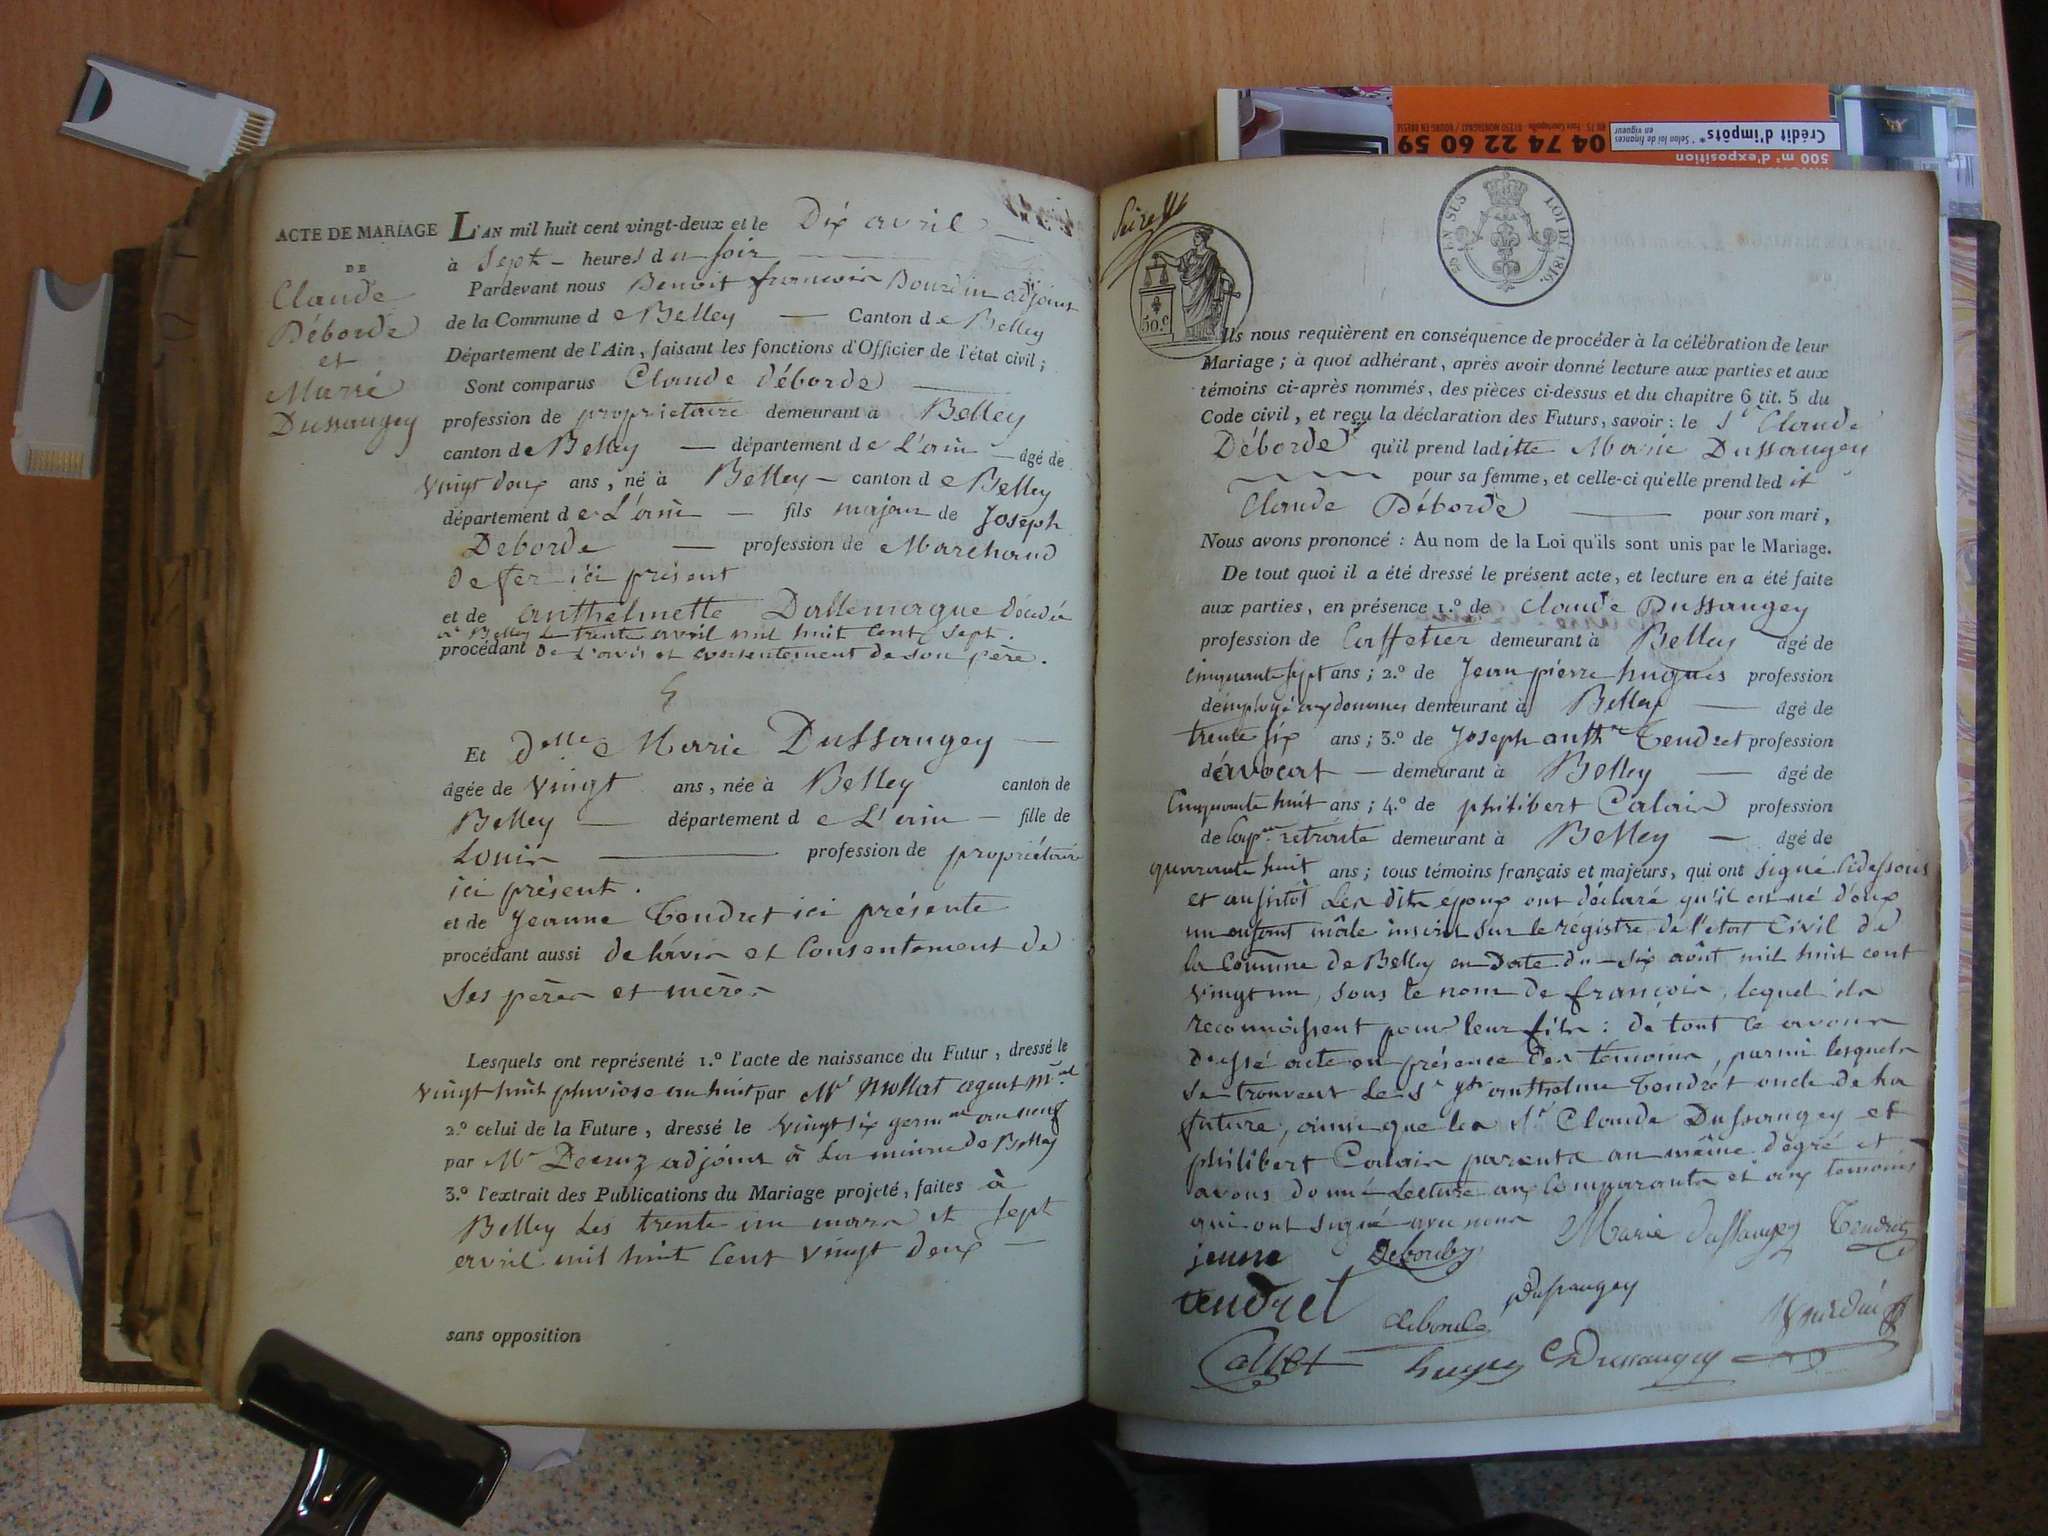 ACTE DE MARIAGE
DE
Claude
Déborde
et
Marie
Dussaugey
L'AN mil huit cent vingt-deux et le Dix avril
à Sept heures du soir
Pardevant nous Benoit francois Bourdin adjoint
de la Commune de Belley Canton de Belley
Département de l'Ain, faisant les fonctions d'Officier de l'état civil;
Sont comparus Claude déborde
profession de propriétaire demeurant à Belley
canton de Belley département de L'ain âgé de
vingt deux ans, né à Belley canton de Belley
département de L'ain fils majeur de Joseph
Deborde profession de Marchand
de fer ici présent
et de anthelmette Dallemagne décédée
à Belley le trente avril mil huit cent sept.
procédant de l'avis et consentement de son père.
Et dlle Marie Dussaugey
âgée de vingt ans, née à Belley canton de
Belley département de L'ain fille de
Louis profession de propriétaire
ici présent.
et de Jeanne Tendret ici présente
procédant aussi de l'avis et Consentement de
Ses pères et mères
Lesquels ont représenté 1.º l'acte de naissance du Futur, dressé le
vingt huit pluviose an huit par Mr Mollet agent mal
2.º celui de la Future, dressé le vingt six germal an neuf
par Mr Decruz adjoint à la mairie de Belley
3.º l'extrait des Publications du Mariage projeté, faites à
Belley les trente un mars et sept
avril mil huit Cent vingt deux
sans opposition
EN SUS LOI DE 1816.
50.c
Ils nous requièrent en conséquence de procéder à la célébration de leur
Mariage; à quoi adhérant, après avoir donné lecture aux parties et aux
témoins ci-après nommés, des pièces ci-dessus et du chapitre 6 tit. 5 du
Code civil, et reçu la déclaration des Futurs, savoir: le Sr Claude
Déborde qu'il prend laditte Marie Dussaugey
pour sa femme, et celle-ci qu'elle prend ledit
Claude Déborde pour son mari,
Nous avons prononcé: Au nom de la Loi qu'ils sont unis par le Mariage.
De tout quoi il a été dressé le présent acte, et lecture en a été faite
aux parties, en présence 1.º de Claude Dussaugey
profession de Caffetier demeurant à Belley âgé de
cinquante sept ans; 2.º de Jean pierre hugues profession
d'employé aux douanes demeurant à Belley âgé de
trente six ans; 3.º de Joseph anthme Tendret profession
d'avocat demeurant à Belley âgé de
Cinquante huit ans; 4.º de philibert Calais profession
de retraite demeurant à Belley âgé de
quarante huit ans; tous témoins français et majeurs, qui ont signé cidessous
et aussitôt Les dits époux ont déclaré qu'il est né d'eux
un enfant mâle inscrit sur le régistre de l'etat Civil de
la Commune de Belley en Date du six août mil huit cent
vingt un, sous le nom de françois, lequel ils
reconnoissent pour leur fils: de tout ce avons
dressé acte en présence des témoins, parmi lesquels
se trouvent le Sr jph anthelme Tendret oncle de la
future, ainsi que les Sr Claude Dussaugey et
philibert Calais parents au même dégré et
avons donné Lecture aux Comparants et aux temoins
qui ont signé avec nous Marie dussaugey Tendret
jeune Deborde
tendret Dussaugey
deborde Bourdin
hugues C Dussaugey
Crédit d'impôts*
* Selon loi de finances
en vigueur
04 74 22 60 59
500 m² d'exposition